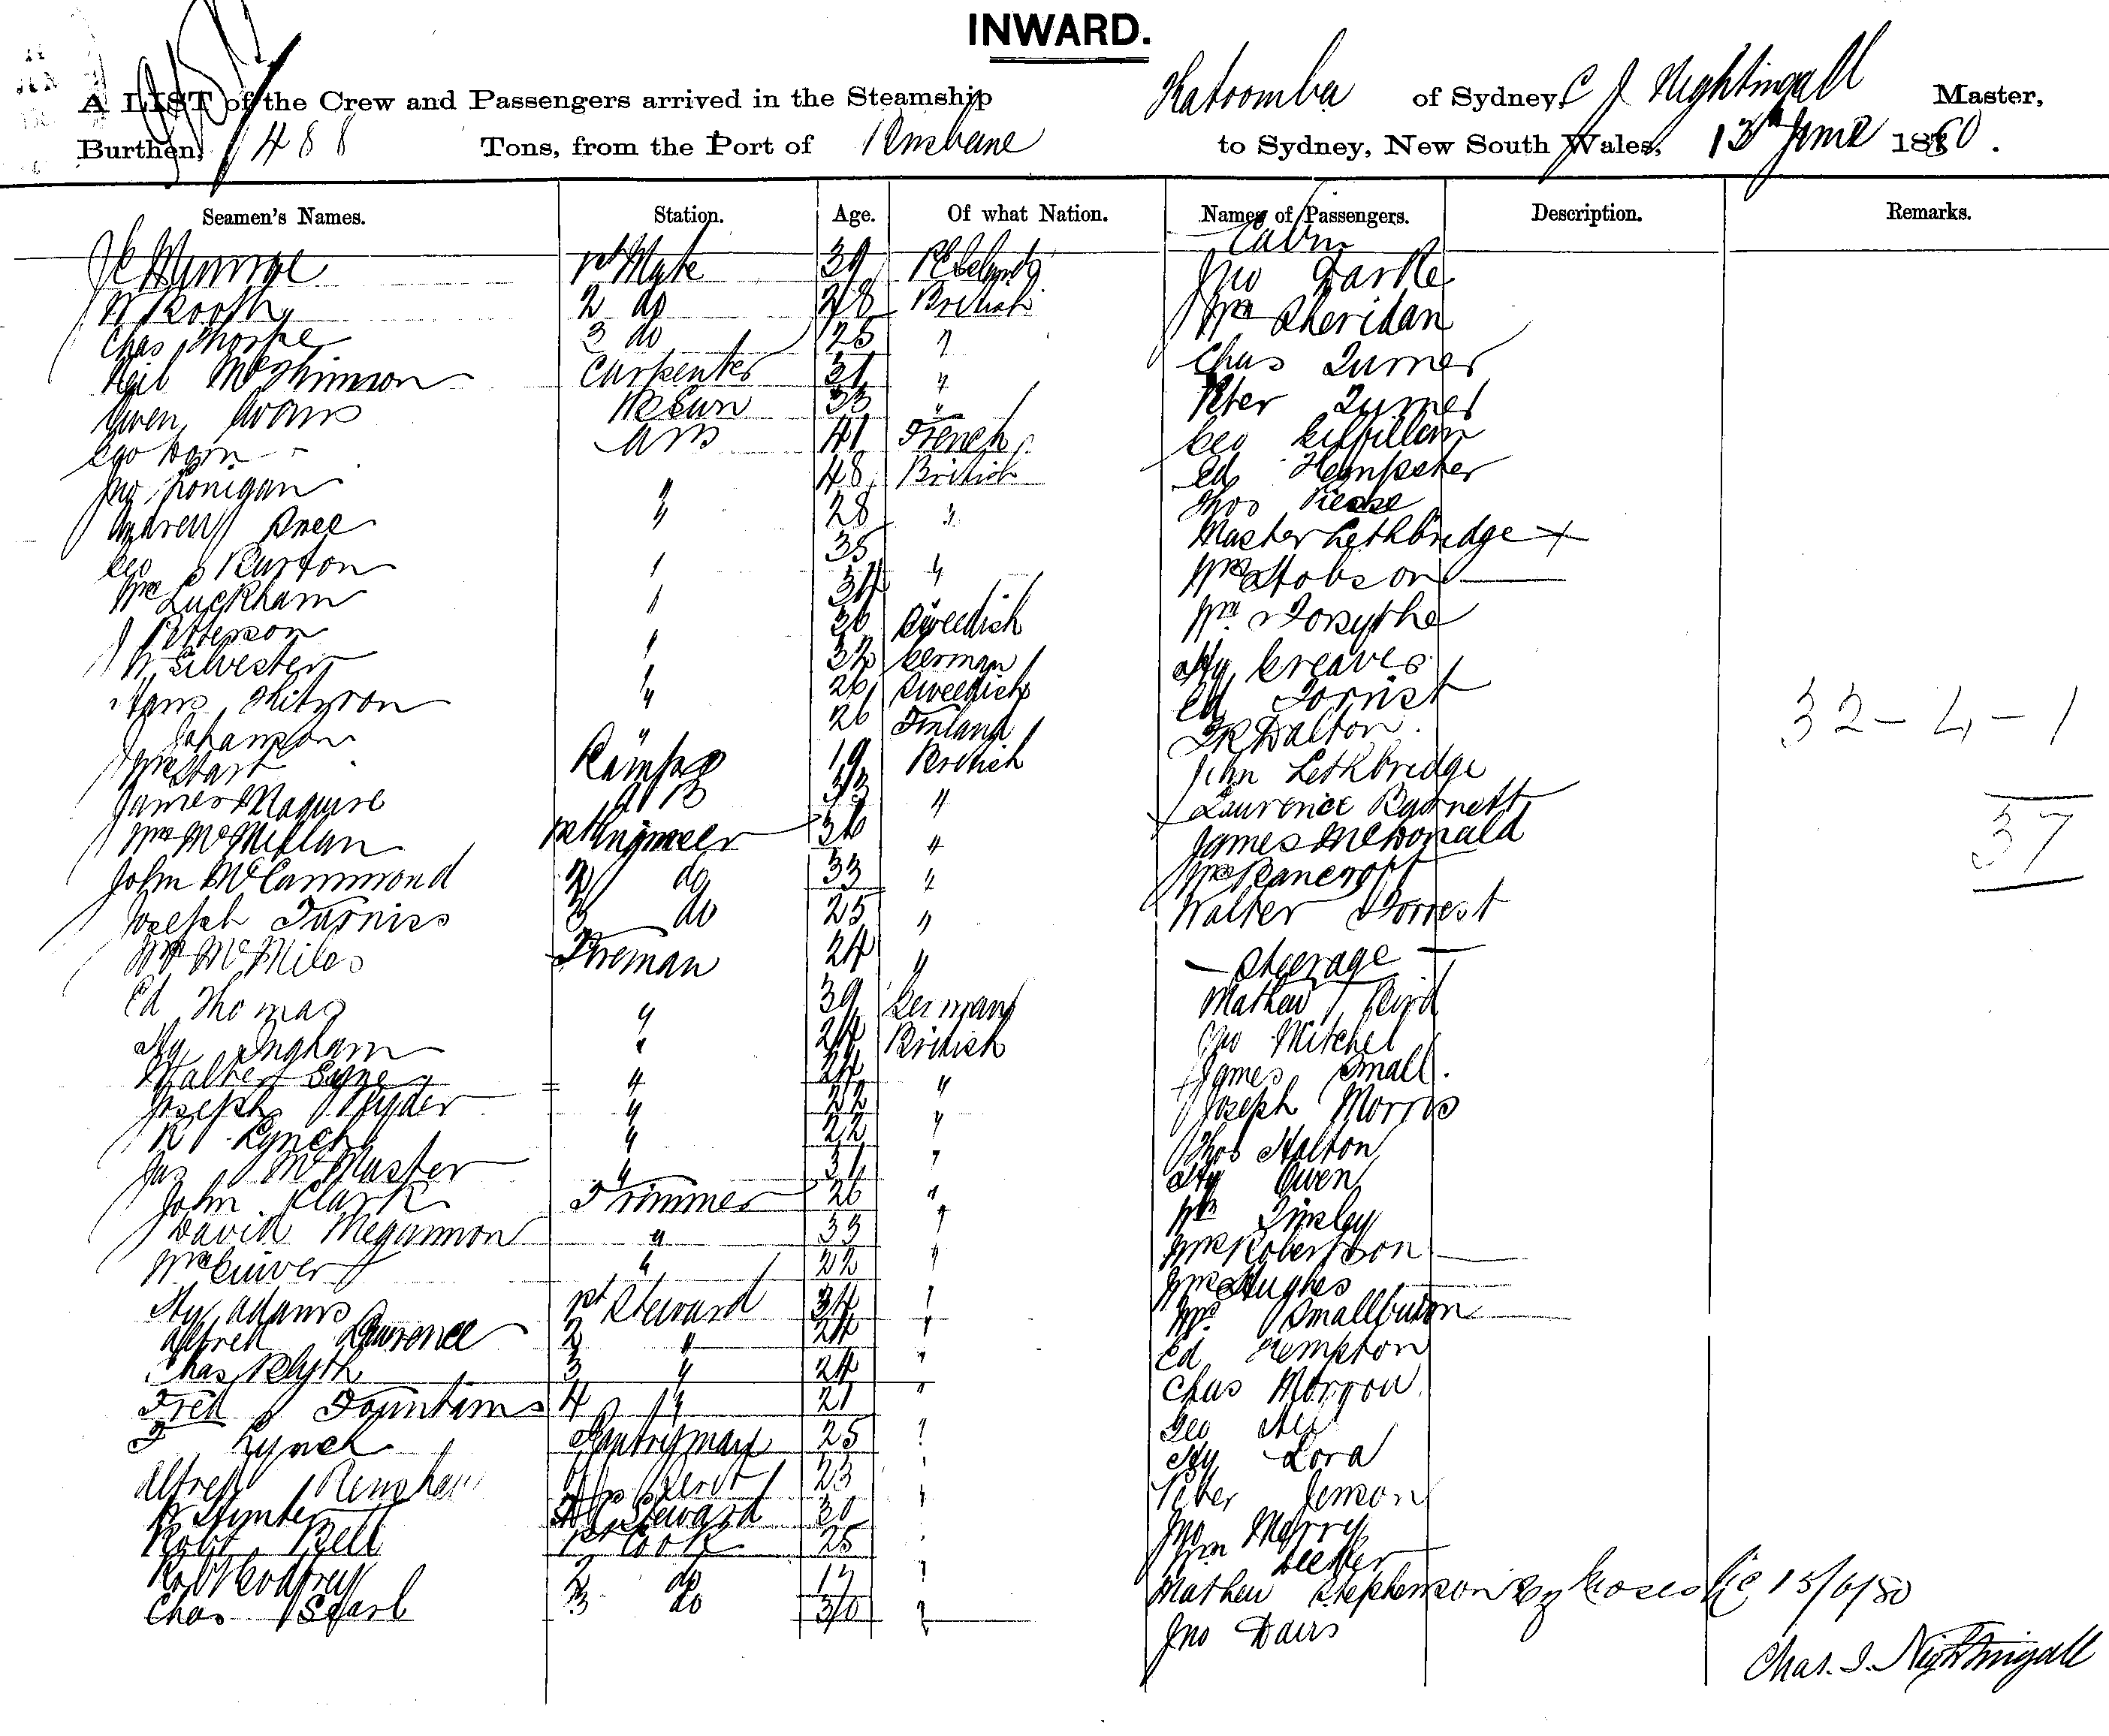 INWARD.
A LIST of the Crew and Passengers arrived in the Steamship Katoomba of Sydney, C J Nightingall Master,
Burthen, 488 Tons, from the Port of Brisbane to Sydney, New South Wales, 13th June 1880.
Seamen's Names. Station. Age. Of what Nation. Names of Passengers. Description. Remarks.
Cabin
J C Munroe 1st Mate 39 Jno
W Booth 2 do 28 British Wm Sheridan
Chas Thorpe 3 do 25 " Chas Turner
Neil Carpenter 31 " Peter Turner
Owen 33 " Geo Gilfillan
Geo AB 41 French Ed Hempster
Jno Lonigan " 48 British Thos
Andrew " 28 " Master Lethbridge
Geo Burton " 35 " Mrs Hobson
Wm Luckham " 34 Wm Forsythe
J Petterson " 36 Sweedish Hy Greaves
W Silvester " 32 German Ed Forrist
Hans " 26 Sweedish Dalton
J Johanson " 26 Finland John Lethbridge
Wm Hart 19 British Laurence Barnett
James Maguire 33 " James McDonald
Wm McMillan 1st Engineer 36 " Bancroft
John McCammond 2 do 33 " Walter Forrest
Joseph Furniss 3 do 25 "
Wm McMiles Fireman 24 " Steerage
Ed Thomas " 39 German Mathew
Hy Ingham " 24 British Jno Mitchel
Walter " 24 " James Small.
Joseph Ryder " 22 " Joseph Morris
R Lynch " 22 " Thos Halton
Jas McMaster " 31 " Hy Owen
John Clark Trimmer 26 " Wm Tinsley
David Megannon " 33 " Mrs Robertson
Wm " 22 " Mrs Hughes
Hy Adams 1st Steward 34 " Smallburn
Alfred Lawrence 2 " 24 " Ed Kempton
Chas Blyth 3 " 24 " Chas Morrow
Fred Fountain 4 " 21 " Geo
F Lynch Pantryman 25 " Hy Lord
Alfred Renshaw 23 " Peter Jenson
W Hunter Steward 30 " Jno Merry
Robt Bell 1st Cook 25 " Wm
Robt Godfrey 2 do 17 " Mathew Stephenson 15/6/80
Chas Searl 3 do 30 " Jno Davis
32-4-1
37
Chas. J. Nightingall